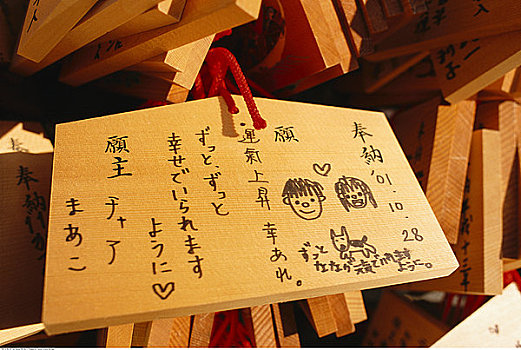 奉納 '01.10.28
願
運氣上昇 幸あれ。
ずっと
ななが元気でいれます
ように。
ずっと、ずっと
幸せでいられます
ように♡
願主 チャア
まあこ
奉納